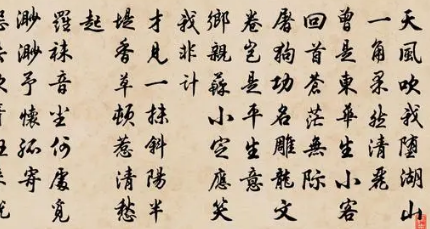 天風吹我墮湖山
一角果然清麗
曾是東華生小客
回首蒼茫無際
屠狗功名雕龍文
卷豈是平生意
鄉親蘇小定應笑
我非計
才見一抹斜陽半
堤香草頓惹清愁
起
羅襪音塵何處覓
渺渺予懷孤寄